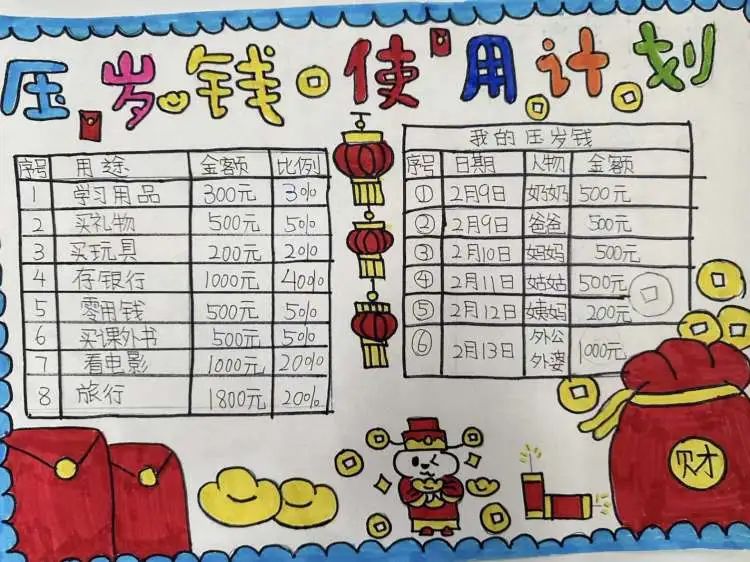 压岁钱使用计划
序号 用途 金额 比例
1 学习用品 300元 3%
2 买礼物 500元 5%
3 买玩具 200元 20%
4 存银行 1000元 40%
5 零用钱 500元 5%
6 买课外书 500元 5%
7 看电影 1000元 20%
8 旅行 1800元 20%
我的压岁钱
序号 日期 人物 金额
① 2月9日 奶奶 500元
② 2月9日 爸爸 500元
③ 2月10日 妈妈 500元
④ 2月11日 姑姑 500元
⑤ 2月12日 姨妈 200元
⑥ 2月13日 外公外婆 1000元
财